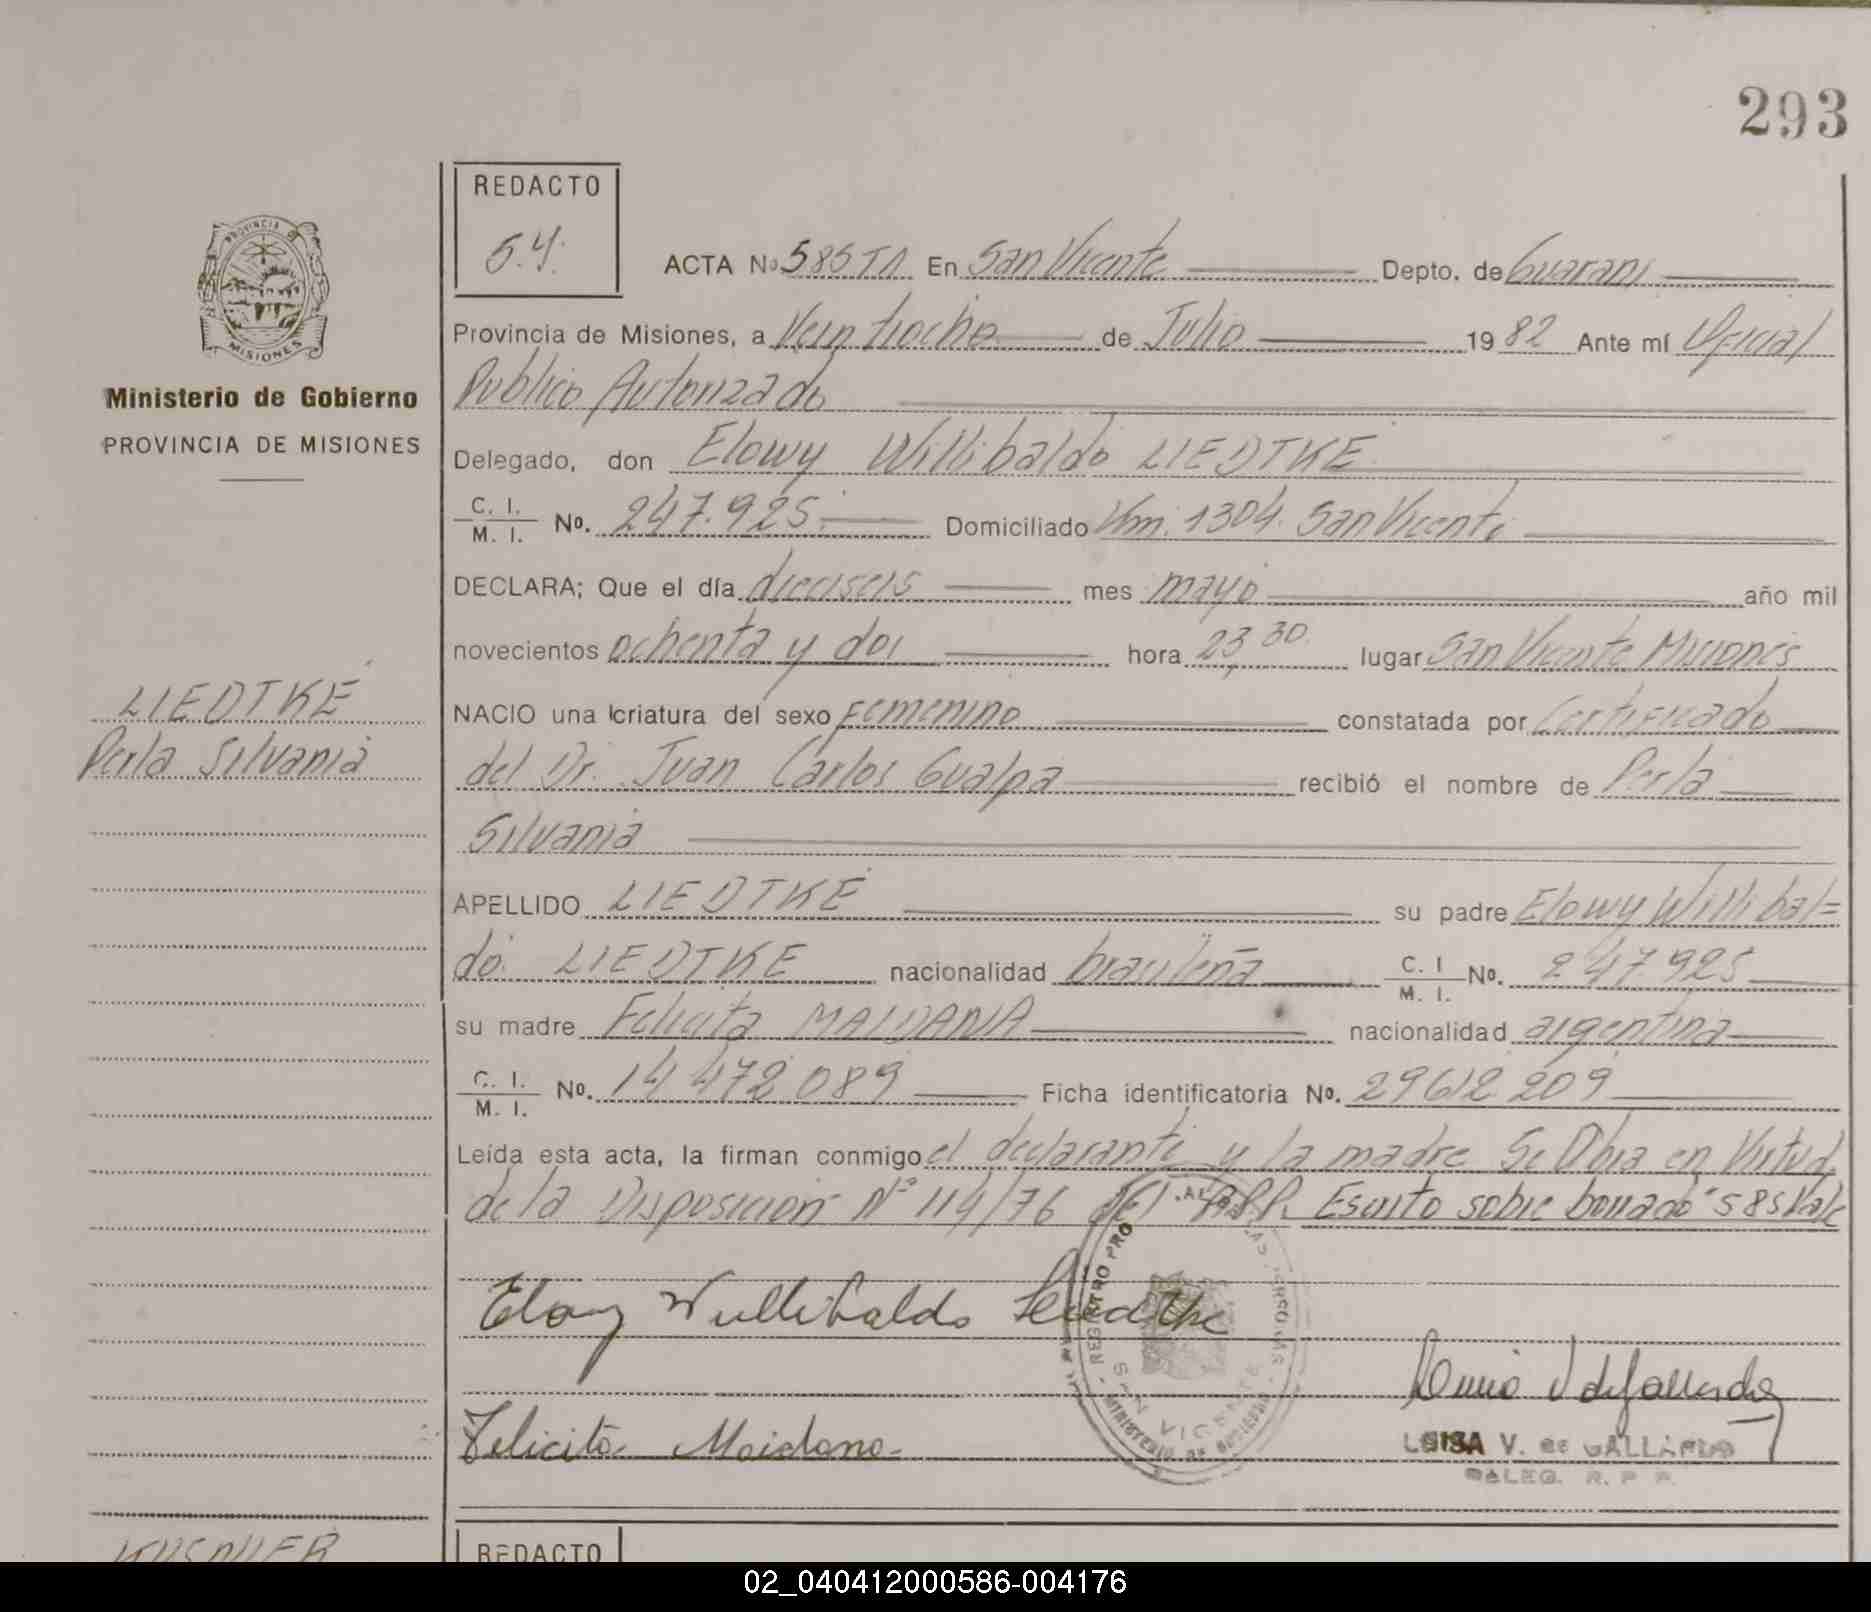 293
REDACTO
S.Y.
PROVINCIA D
MISIONES
Ministerio de Gobierno
PROVINCIA DE MISIONES
LIEDTKE
Perla Silvania
ACTA No 585 TA En San Vicente Depto. de Guarani
Provincia de Misiones, a Veintiocho de Julio 1982 Ante mí Oficial
Publico Autorizado
Delegado, don Elowy Willibaldo LIEDTKE
C. I. / M. I. No. 247.925. Domiciliado Km. 1304. San Vicente
DECLARA; Que el día dieciseis mes mayo año mil
novecientos ochenta y dos hora 23,30. lugar San Vicente Misiones
NACIO una criatura del sexo Femenino constatada por Certificado
del Dr. Juan Carlos Gualpa recibió el nombre de Perla
Silvania
APELLIDO LIEDTKE su padre Elowy Willibal=
do. LIEDTKE nacionalidad brasileña C. I / M. I. No. 247.925
su madre Felicita MAIDANA nacionalidad argentina
C. I. / M. I. No. 14 472 089 Ficha identificatoria No. 29612 209
Leída esta acta, la firman conmigo el declarante y la madre Se Obra en Virtud
de la Disposicion Nº 114/76 del R.P.P. Escrito sobre borrado "585 Vale
Eloy Willibaldo Liedtke
Felicita Maidana
REGISTRO PRO
SAN VICENTE
MINISTERIO DE GOBIERNO
LUISA V. de GALLARDO
DELEG. R. P. P.
REDACTO
02_040412000586-004176